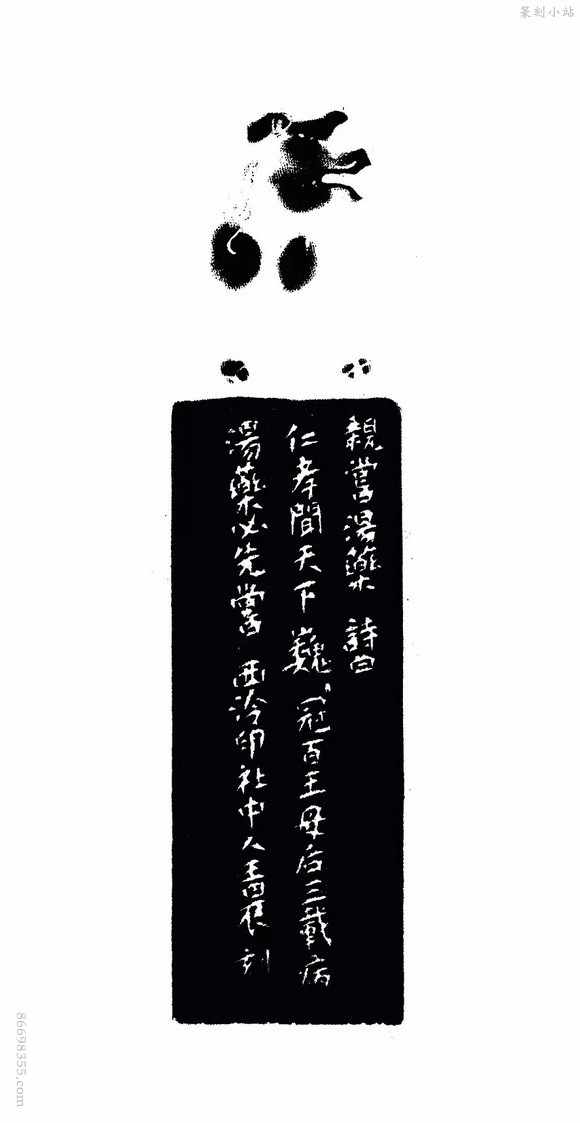 篆刻小站
親嘗湯藥 詩曰
仁孝聞天下巍〻冠百王母后三載病
湯藥必先嘗 西泠印社中人刻
86698355.com